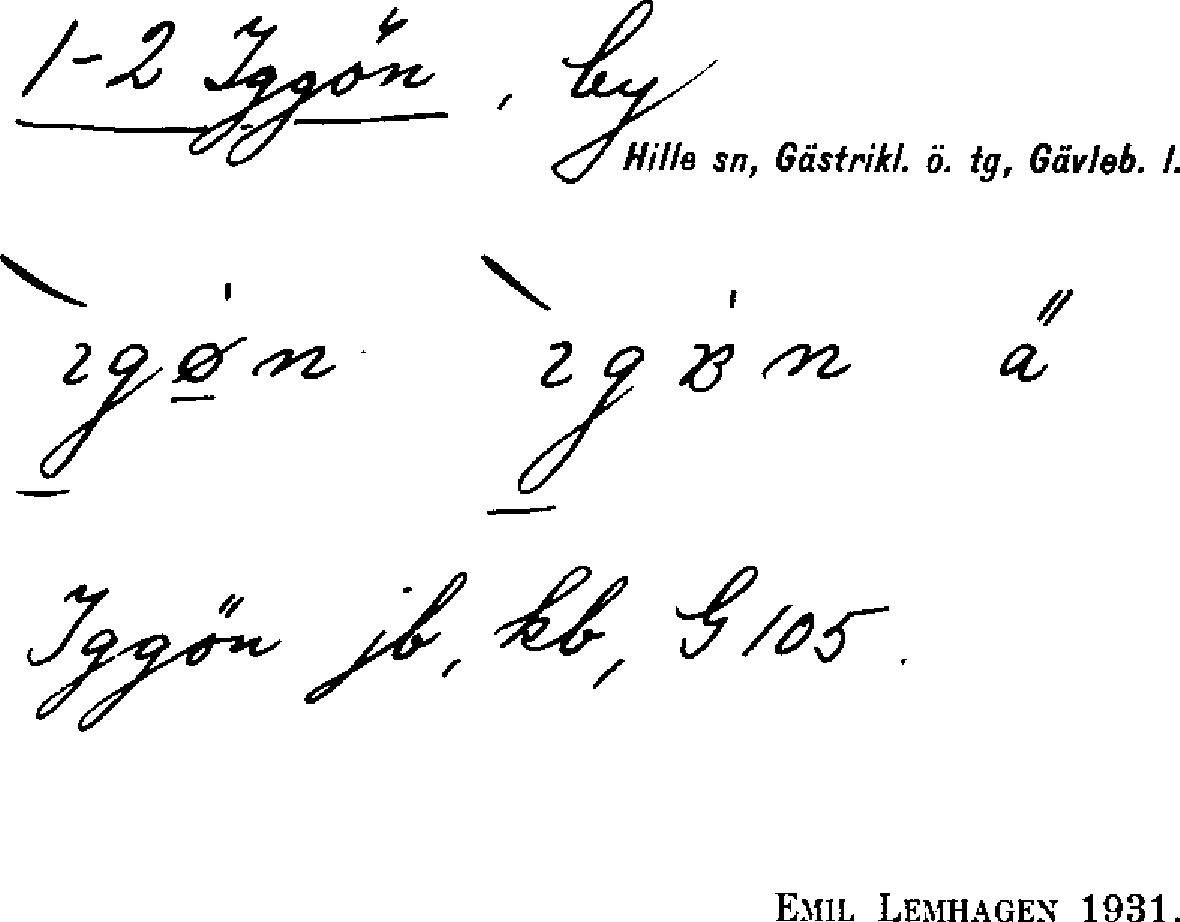 1-2 Iggön, by
Hille sn, Gästrikl. ö. tg, Gävleb. l.
ıgø̱n ıgɞn ä
Iggön jb, kb, G 105.
EMIL LEMHAGEN 1931.